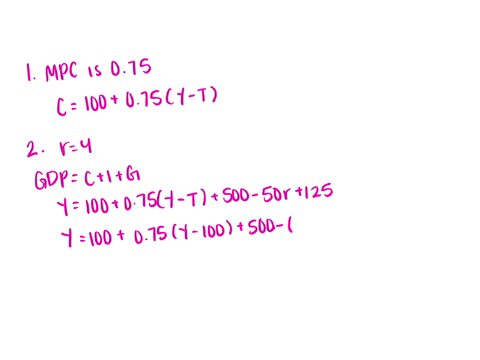 1. MPC is 0.75
C = 100 + 0.75(Y-T)
2. r=4
GDP = C+I+G
Y = 100 + 0.75(Y-T) + 500 - 50r + 125
Y = 100 + 0.75(Y-100) + 500 - (